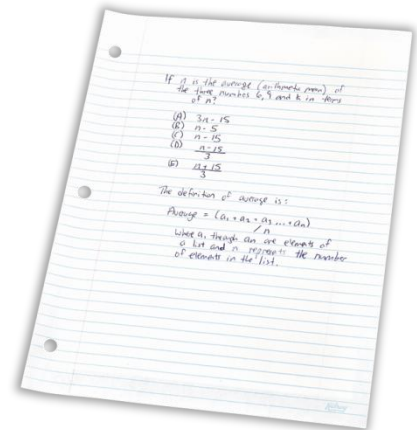 If n is the average (arithmetic mean) of
the three numbers 6, 9 and k in terms
of n?
(A) 3n - 15
(B) n - 5
(C) n - 15
(D) n - 15
3
(E) n + 15
3
The definition of average is:
Average = (a₁ + a₂ + a₃ ... + an)
/ n
where a₁ through an are elements of
a list and n represents the number
of elements in the list.